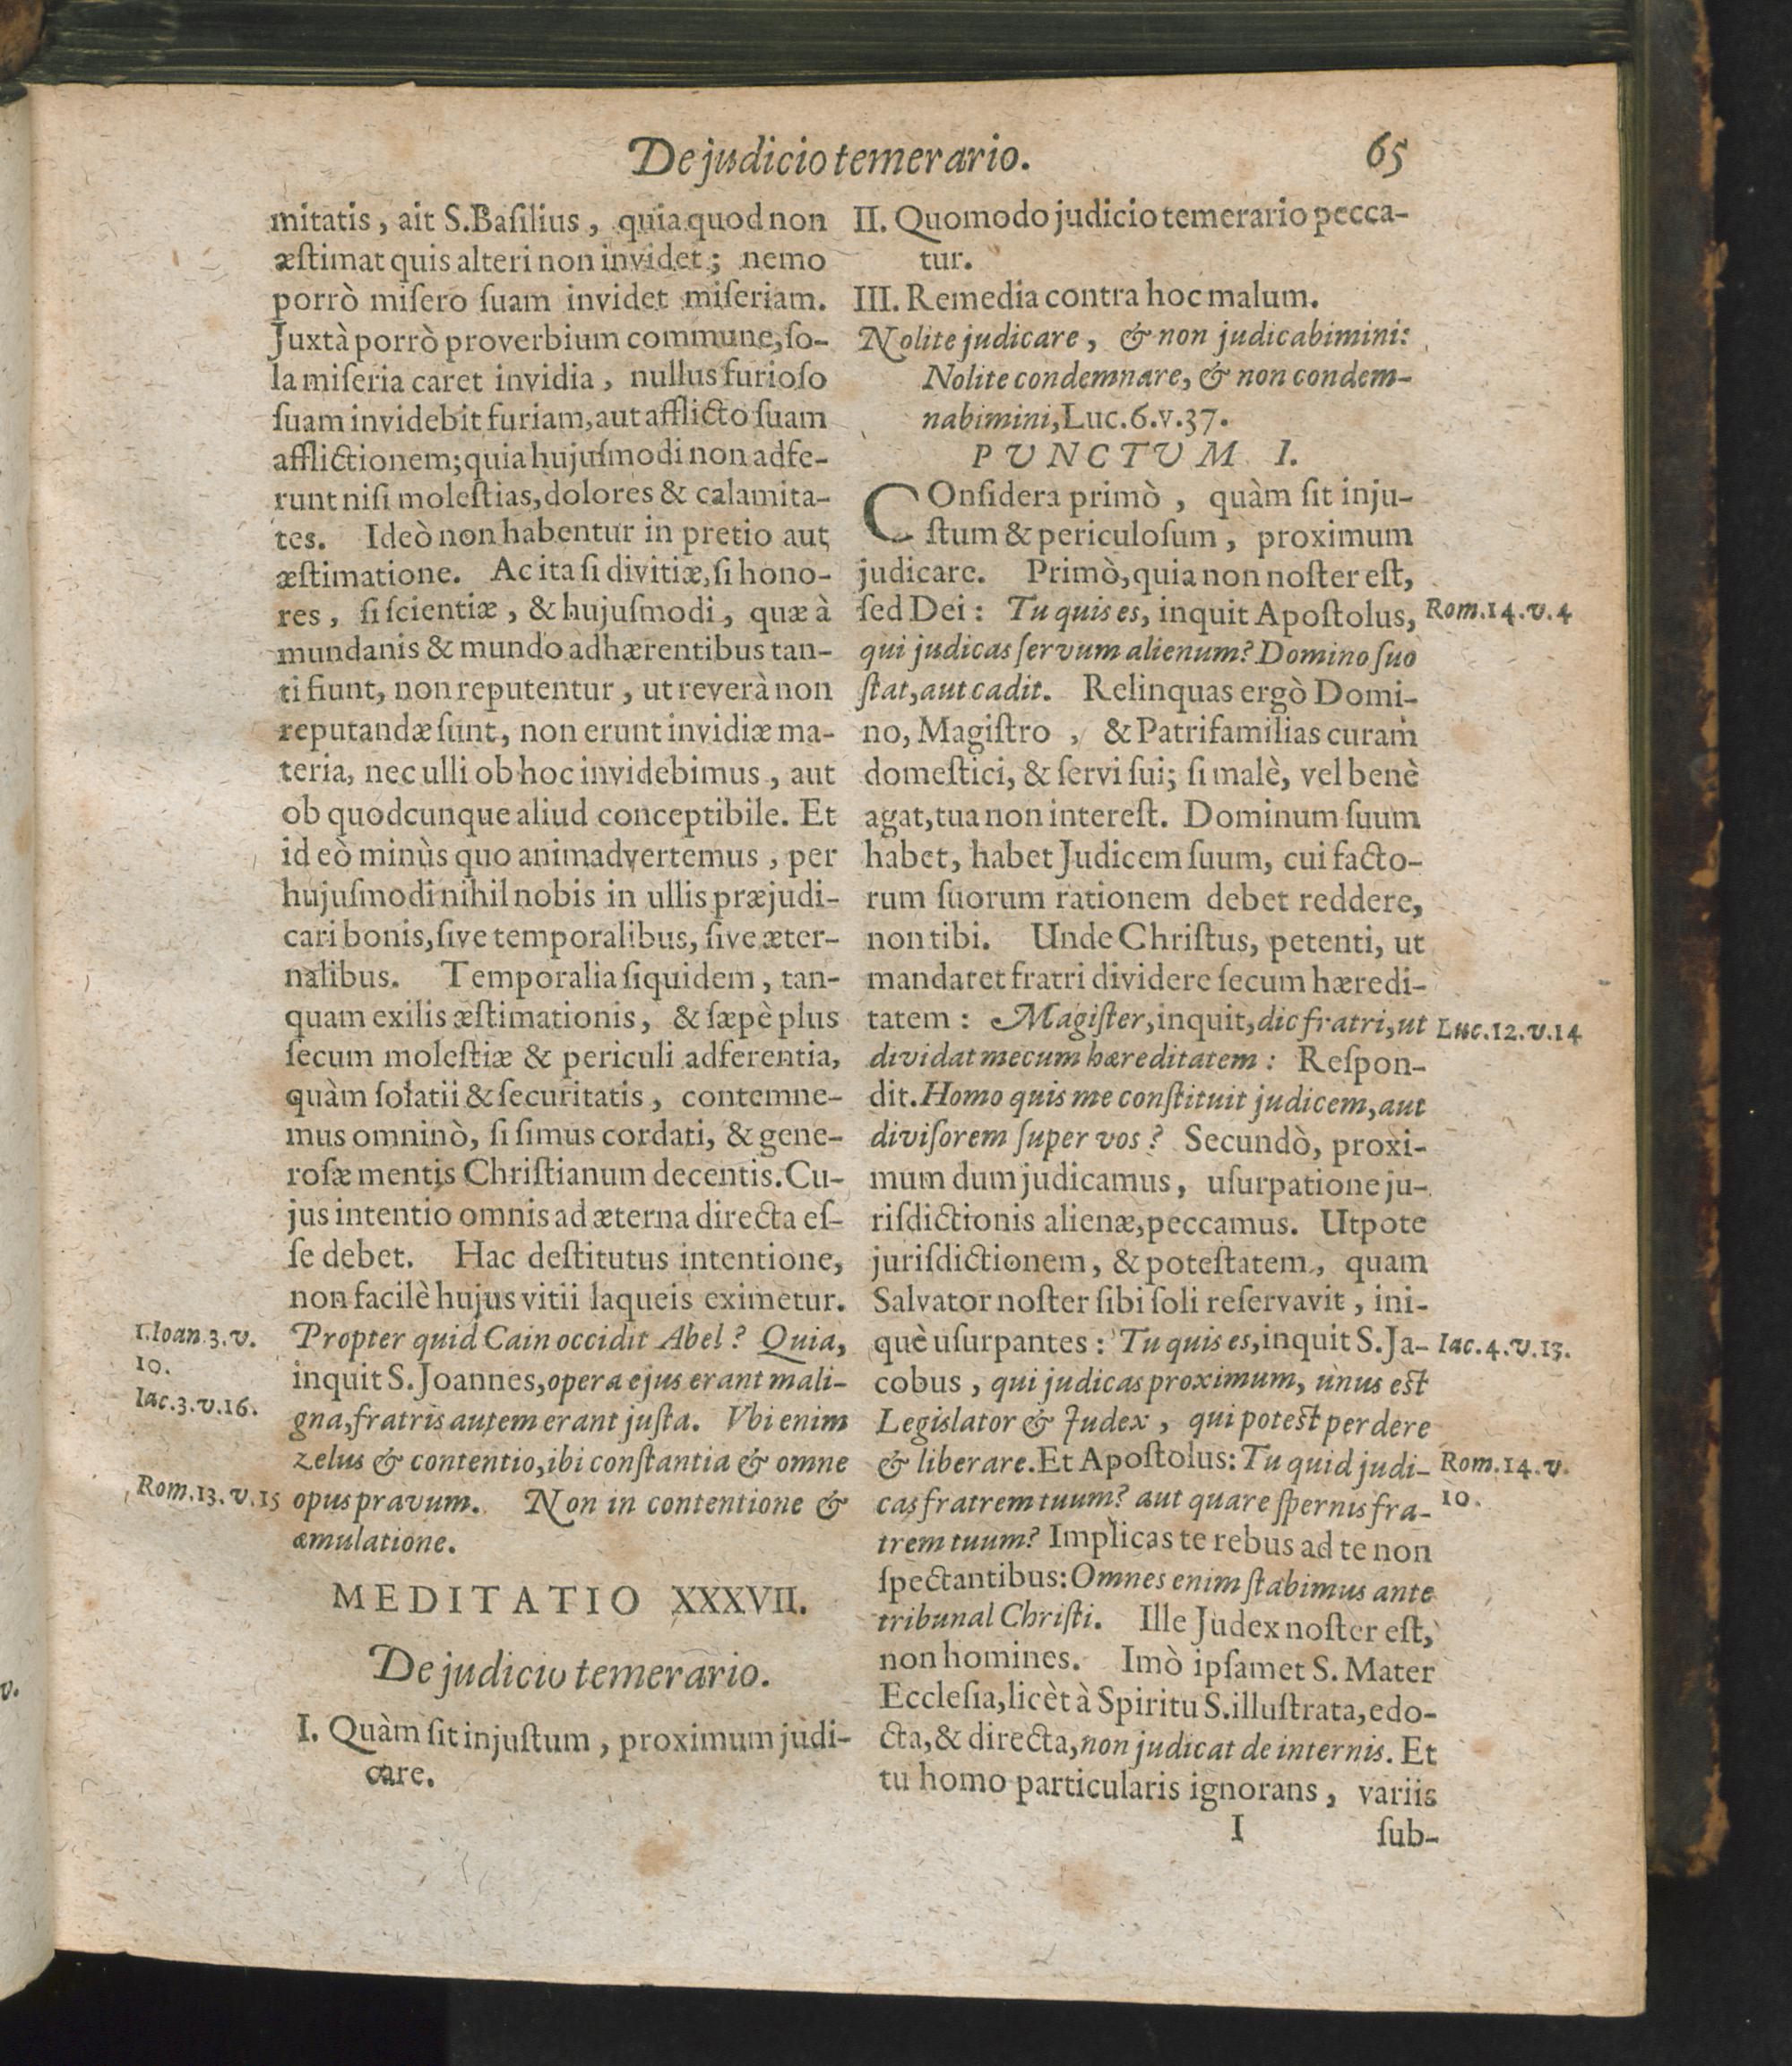 De judicio temerario.
65
mitatis, ait S. Baſilius, quia quod non
æſtimat quis alteri non invidet; nemo
porrò miſero ſuam invidet miſeriam.
Juxtà porrò proverbium commune, ſo-
la miſeria caret invidia, nullus furioſo
ſuam invidebit furiam, aut afflicto ſuam
afflictionem; quia hujuſmodi non adfe-
runt niſi moleſtias, dolores & calamita-
tes. Ideò non habentur in pretio aut
æſtimatione. Ac ita ſi divitiæ, ſi hono-
res, ſi ſcientiæ, & hujuſmodi, quæ à
mundanis & mundo adhærentibus tan-
ti fiunt, non reputentur, ut reverà non
reputandæ ſunt, non erunt invidiæ ma-
teria, nec ulli ob hoc invidebimus, aut
ob quodcunque aliud conceptibile. Et
id eò minùs quo animadvertemus, per
hujuſmodi nihil nobis in ullis præjudi-
cari bonis, ſive temporalibus, ſive æter-
nalibus. Temporalia ſiquidem, tan-
quam exilis æſtimationis, & ſæpè plus
ſecum moleſtiæ & periculi adferentia,
quàm ſolatii & ſecuritatis, contemne-
mus omninò, ſi ſimus cordati, & gene-
roſæ mentis Chriſtianum decentis. Cu-
jus intentio omnis ad æterna directa eſ-
ſe debet. Hac deſtitutus intentione,
non facilè hujus vitii laqueis eximetur.
Propter quid Cain occidit Abel? Quia,
inquit S. Joannes, opera ejus erant mali-
gna, fratris autem erant juſta. Vbi enim
zelus & contentio, ibi conſtantia & omne
opus pravum. Non in contentione &
æmulatione.
1. Ioan. 3. v.
10.
Iac. 3. v. 16.
Rom. 13. v. 15
MEDITATIO XXXVII.
De judicio temerario.
I. Quàm ſit injuſtum, proximum judi-
care.
II. Quomodo judicio temerario pecca-
tur.
III. Remedia contra hoc malum.
Nolite judicare, & non judicabimini:
Nolite condemnare, & non condem-
nabimini, Luc. 6. v. 37.
PUNCTUM I.
COnſidera primò, quàm ſit inju-
ſtum & periculoſum, proximum
judicare. Primò, quia non noſter eſt,
ſed Dei: Tu quis es, inquit Apoſtolus,
qui judicas ſervum alienum? Domino ſuo
ſtat, aut cadit. Relinquas ergò Domi-
no, Magiſtro, & Patrifamilias curam
domeſtici, & ſervi ſui; ſi malè, vel benè
agat, tua non intereſt. Dominum ſuum
habet, habet Judicem ſuum, cui facto-
rum ſuorum rationem debet reddere,
non tibi. Unde Chriſtus, petenti, ut
mandaret fratri dividere ſecum hæredi-
tatem: Magiſter, inquit, dic fratri, ut
dividat mecum hæreditatem: Reſpon-
dit. Homo quis me conſtituit judicem, aut
diviſorem ſuper vos? Secundò, proxi-
mum dum judicamus, uſurpatione ju-
riſdictionis alienæ, peccamus. Utpote
juriſdictionem, & poteſtatem, quam
Salvator noſter ſibi ſoli reſervavit, ini-
què uſurpantes: Tu quis es, inquit S. Ja-
cobus, qui judicas proximum, ùnus eſt
Legislator & Judex, qui poteſt perdere
& liberare. Et Apoſtolus: Tu quid judi-
cas fratrem tuum? aut quare ſpernis fra-
trem tuum? Implicas te rebus ad te non
ſpectantibus: Omnes enim ſtabimus ante
tribunal Chriſti. Ille Judex noſter eſt,
non homines. Imò ipſamet S. Mater
Eccleſia, licèt à Spiritu S. illuſtrata, edo-
cta, & directa, non judicat de internis. Et
tu homo particularis ignorans, variis
Rom. 14. v. 4
Luc. 12. v. 14
Iac. 4. v. 13.
Rom. 14. v.
10.
I
ſub-
v.